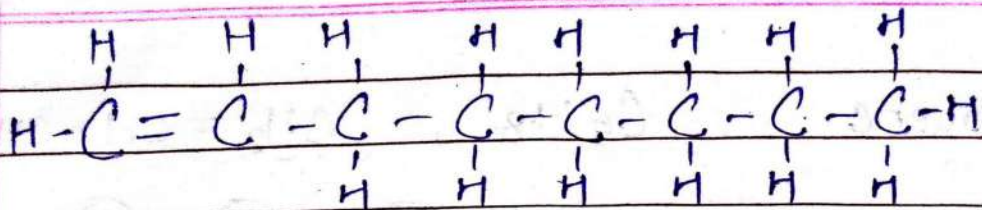 H H H H H H H H
H-C = C - C - C - C - C - C - C-H
H H H H H H